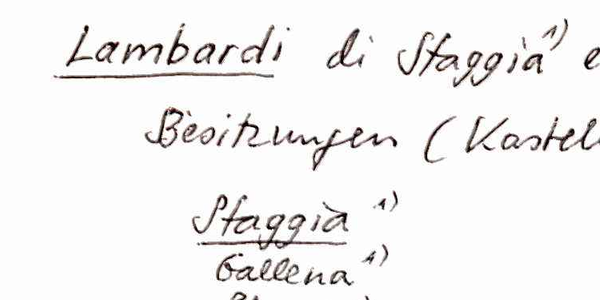 Lambardi di Staggia 1) e
Besitzungen (Kastel
Staggia 1)
Gallena 1)